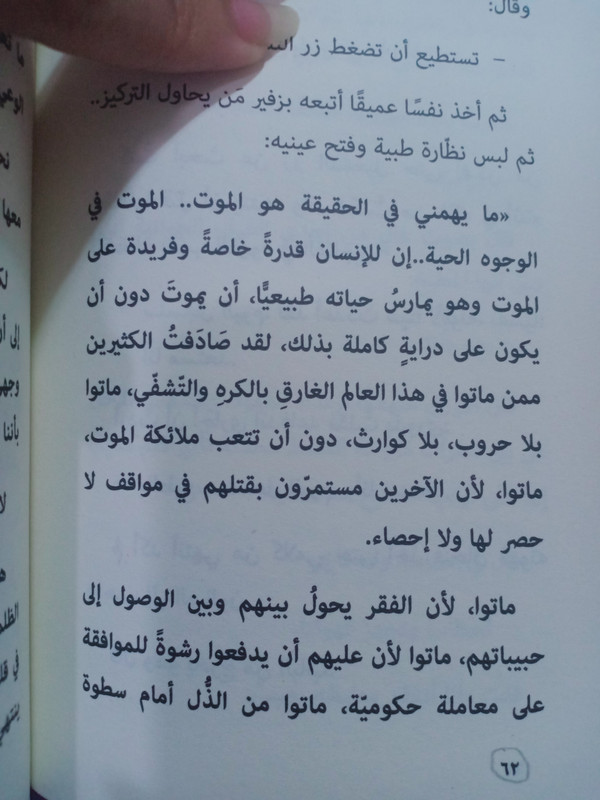 وقال:
– تستطيع أن تضغط زر
ثم أخذ نفسًا عميقًا أتبعه بزفير مَن يحاول التركيز..
ثم لبس نظّارة طبية وفتح عينيه:
«ما يهمني في الحقيقة هو الموت.. الموت في
الوجوه الحية..إن للإنسان قدرةً خاصةً وفريدة على
الموت وهو يمارسُ حياته طبيعيًّا، أن يموتَ دون أن
يكون على درايةٍ كاملة بذلك، لقد صَادَفتُ الكثيرين
ممن ماتوا في هذا العالم الغارقِ بالكرهِ والتّشفّي، ماتوا
بلا حروب، بلا كوارث، دون أن تتعب ملائكة الموت،
ماتوا، لأن الآخرين مستمرّون بقتلهم في مواقف لا
حصر لها ولا إحصاء.
ماتوا، لأن الفقر يحولُ بينهم وبين الوصول إلى
حبيباتهم، ماتوا لأن عليهم أن يدفعوا رشوةً للموافقة
على معاملة حكوميّة، ماتوا من الذُّل أمام سطوة
٦٢